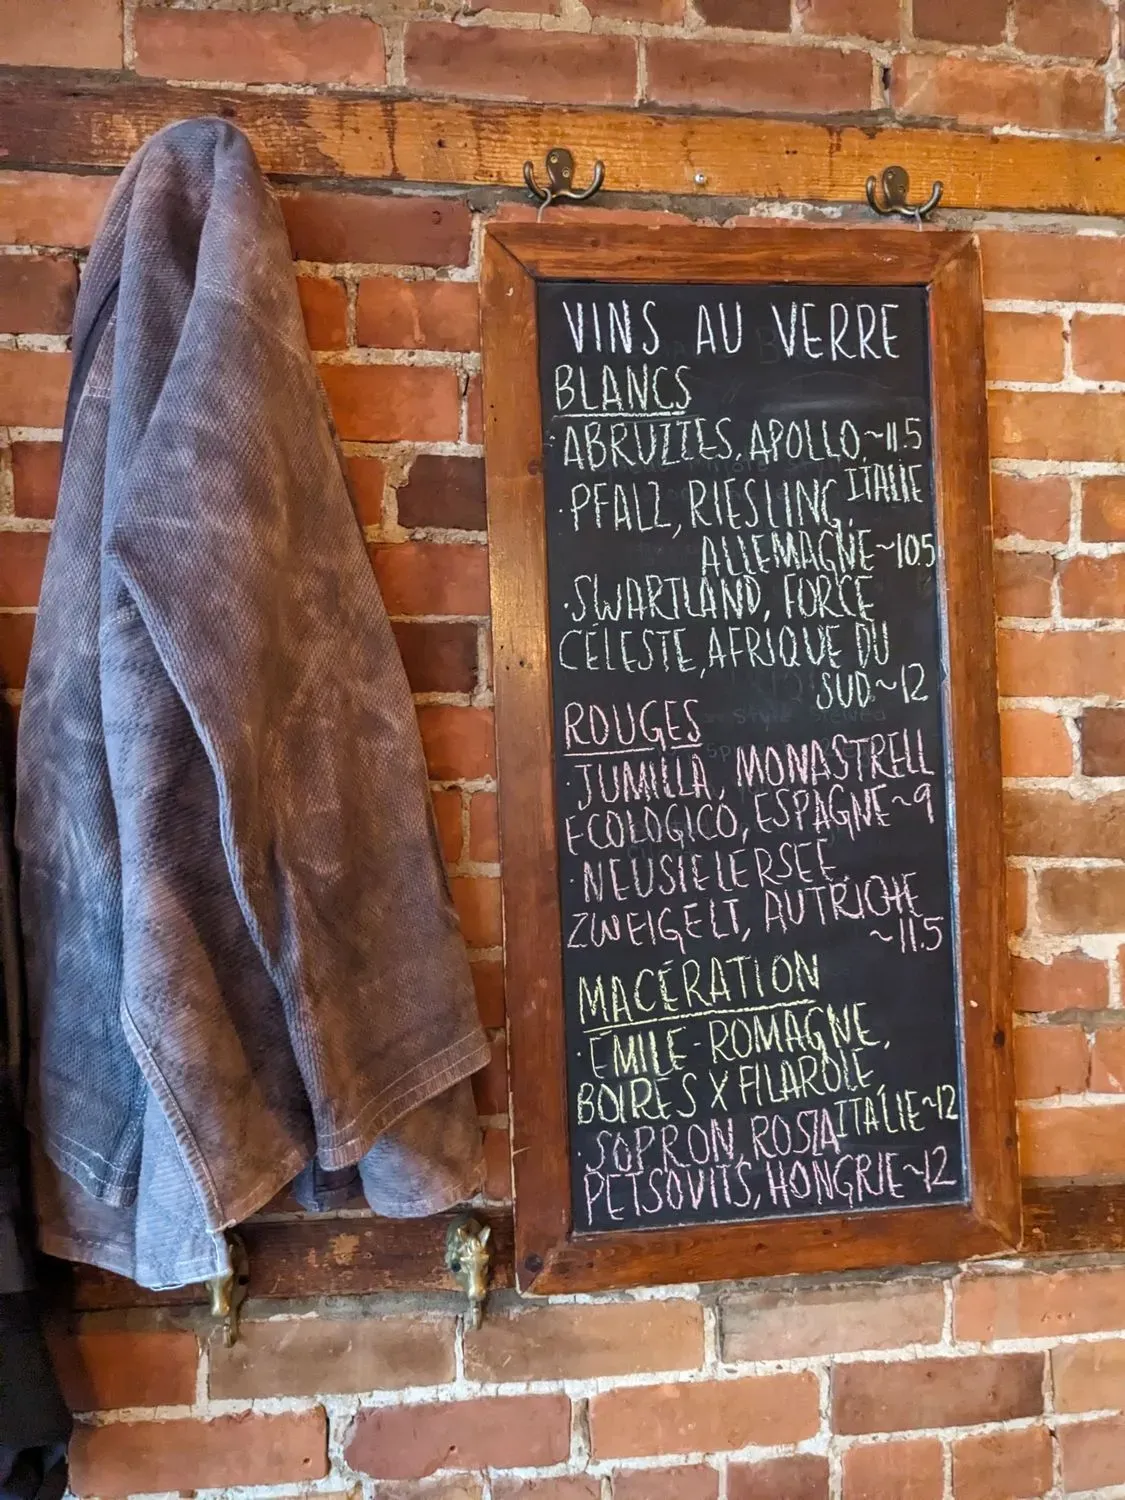 VINS AU VERRE
BLANCS
·ABRUZZES, APOLLO,~11.5
ITALIE
·PFALZ, RIESLING,
ALLEMAGNE~10.5
·SWARTLAND, FORCE
CÉLESTE, AFRIQUE DU
SUD~12
ROUGES
·JUMILLA, MONASTRELL
ECOLOGICO, ESPAGNE~9
·NEUSIELERSEE,
ZWEIGELT, AUTRICHE
~11.5
MACÉRATION
·ÉMILE-ROMAGNE,
BOIRES X FILAROLE,
ITALIE~12
·SOPRON, ROSZA
PETSOVITS, HONGRIE~12